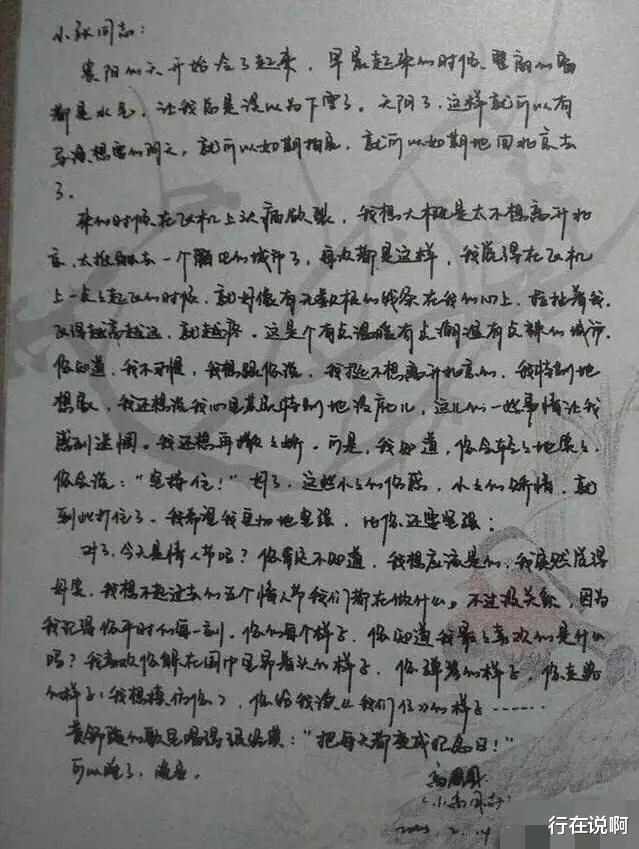 小张同志：
襄阳的天开始冷了起来，早晨起来的时候，壁前的窗
都是水气，让我总是误以为下雪了。天阴了，这样就可以有
导演想要的阴天，就可以如期拍完，就可以如期地回北京去
了。
来的时候在飞机上头痛欲裂，我想大概是太不想离开北
京，太抵触去一个陌生的城市了，每次都是这样，我觉得在飞机
上一点点起飞的时候，就好像有无数根的线系在我的心上，拉扯着我，
飞得越高越远，就越疼。这是个有点温暖有点潮湿有点辣的城市。
你知道，我不习惯，我想跟你说，我挺不想离开北京的，我特别地
想家，我还想说我心里其实特别地没底儿，这儿的一些事情让我
感到迷惘。我还想再撒点娇。可是，我知道，你会轻轻地笑笑，
你会说："坚持住！"好了，这些小小的伤感，小小的矫情，就
到此打住了。我希望我更加地坚强，比你还要坚强！
对了，今天是情人节吗？你肯定不知道，我想应该是的，我突然觉得
好笑，我想不起过去的五个情人节我们都在做什么。不过没关系，因为
我记得你平时的每一刻，你的每个样子，你知道我最喜欢的是什么
吗？我喜欢你躲在围巾里界着头的样子，你弹琴的样子，你走路
的样子（我想模仿你），你给我读《我们仨》的样子……
黄舒骏的歌里唱得很好笑："把每天都变成纪念日！"
可以睡了，晚安。
（小高同志）
2003.2.14
行在说啊